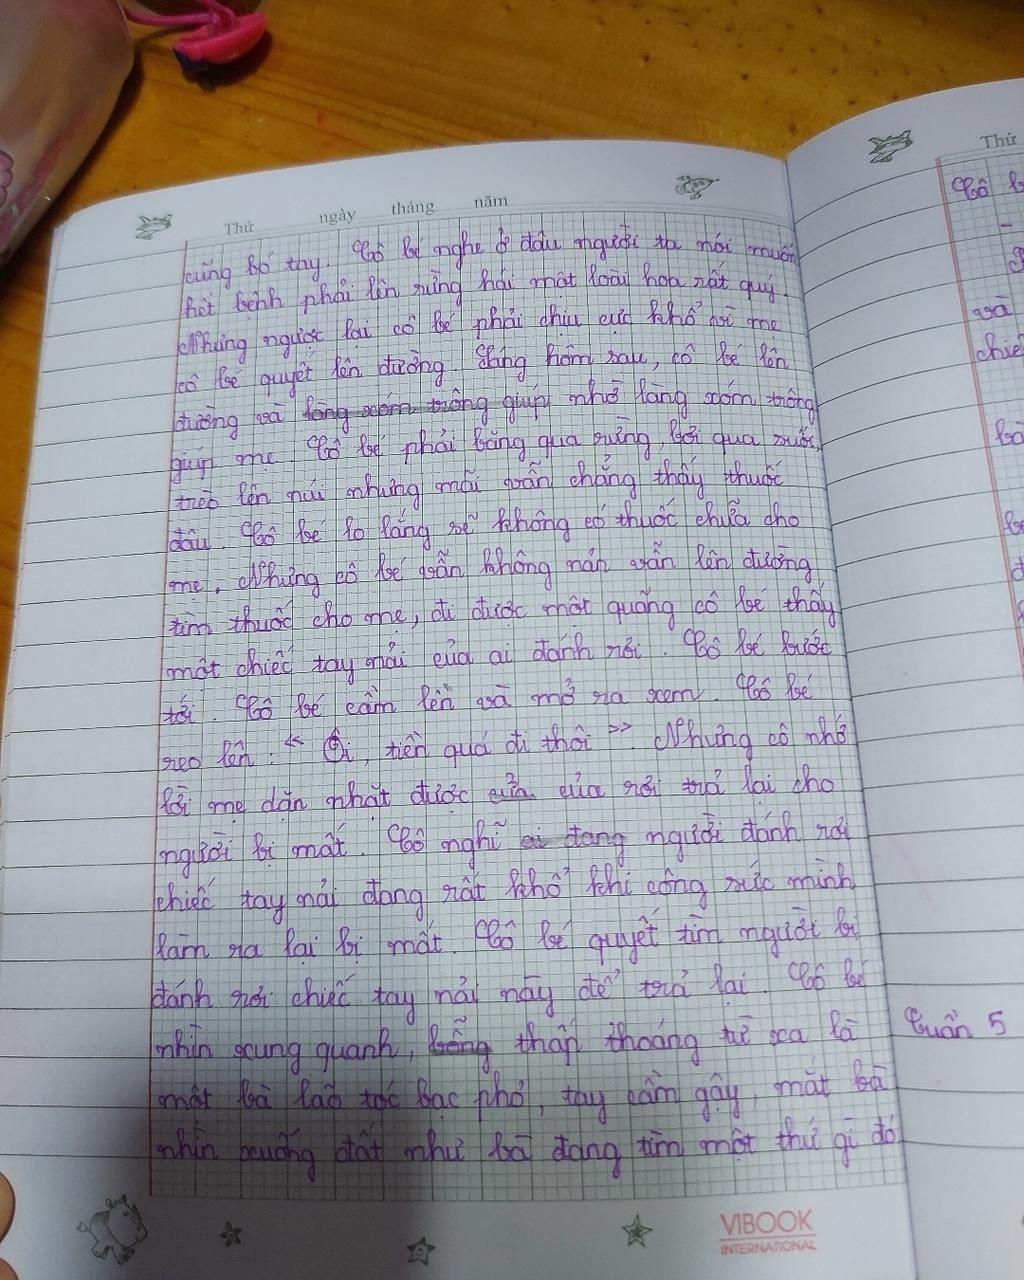 Thứ ngày tháng năm
cũng bó tay. Cô bé nghe ở đâu người ta nói muốn
hết bệnh phải lên rừng hái một loài hoa rất quý.
Nhưng ngược lại cô bé phải chịu cực khổ vì mẹ
cô bé quyết lên đường. Sáng hôm sau, cô bé lên
đường và làng xóm trông giúp nhờ làng xóm trông
giúp mẹ. Cô bé phải băng qua rừng, bơi qua suối,
trèo lên núi nhưng mãi vẫn chẳng thấy thuốc
đâu. Cô bé lo lắng sẽ không có thuốc chữa cho
mẹ. Nhưng cô bé vẫn không nản vẫn lên đường
tìm thuốc cho mẹ, đi được một quãng cô bé thấy
một chiếc tay nải của ai đánh rơi. Cô bé bước
tới. Cô bé cầm lên và mở ra xem. Cô bé
reo lên: << Ôi, tiền quá đi thôi >> Nhưng cô nhớ
lời mẹ dặn nhặt được của của rơi trả lại cho
người bị mất. Cô nghĩ ai đang người đánh rơi
chiếc tay nải đang rất khổ khi công sức mình
làm ra lại bị mất. Cô bé quyết tìm người bị
đánh rơi chiếc tay nải này để trả lại. Cô bé
nhìn xung quanh, bỗng thấp thoáng từ xa là
một bà lão tóc bạc phơ, tay cầm gậy, mắt bà
nhìn xuống đất như bà đang tìm một thứ gì đó
VIBOOK
INTERNATIONAL
Thứ
Cô
-
và
Tuần 5